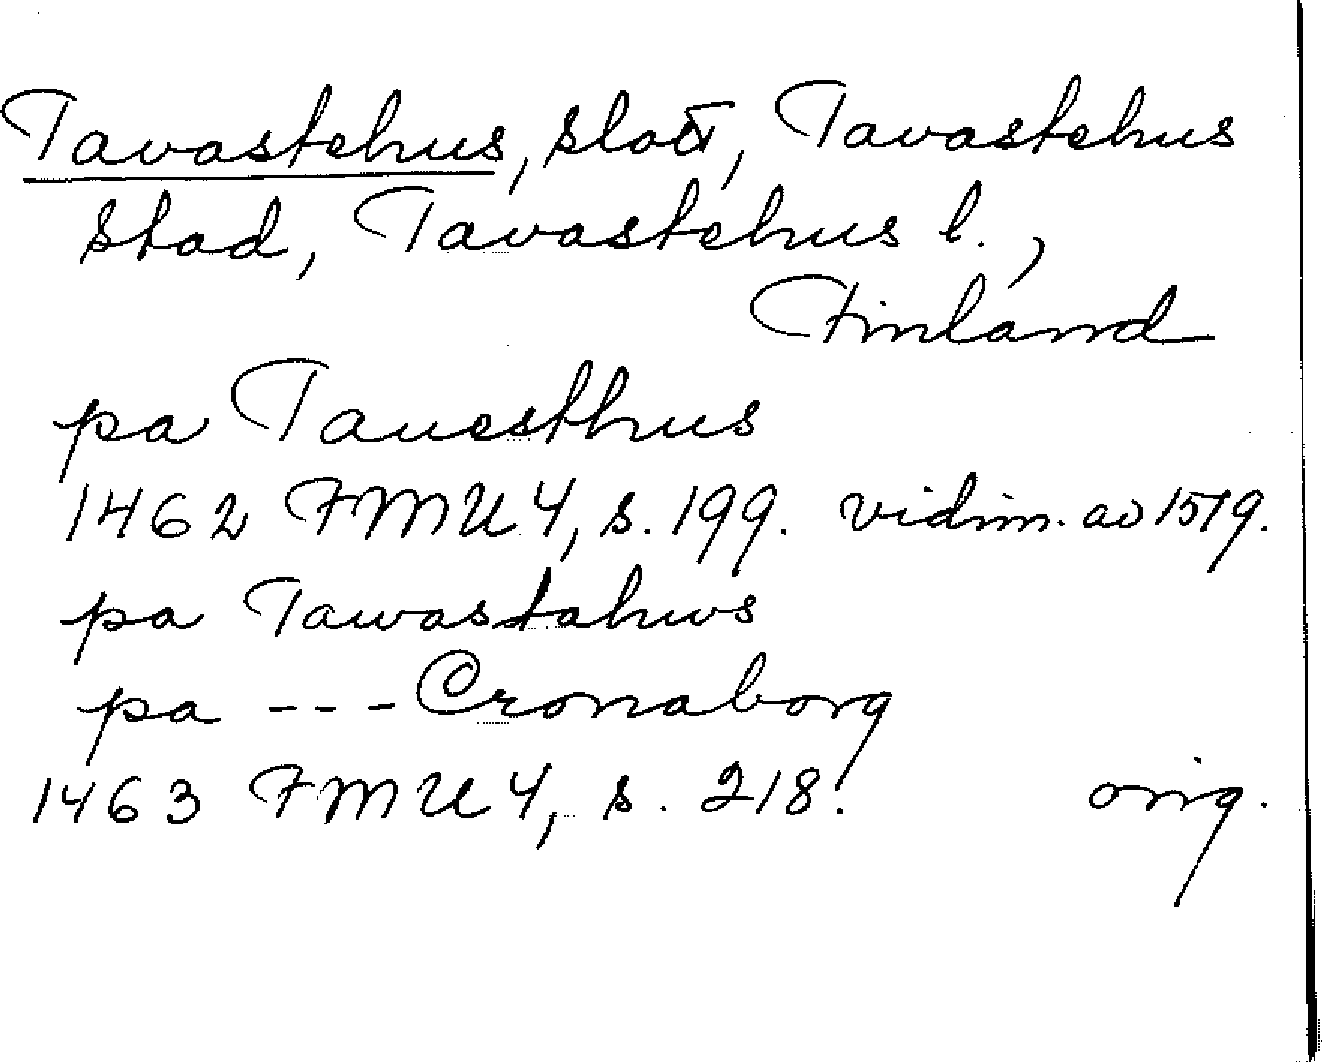 Tavastehus, slott, Tavastehus
stad, Tavastehus l.,
Finland
pa Tauesthus
1462 FMU 4, s. 199. vidim. av 1519.
pa Tawastahws
pa --- Cronaborg
1463 FMU 4, s. 218. orig.